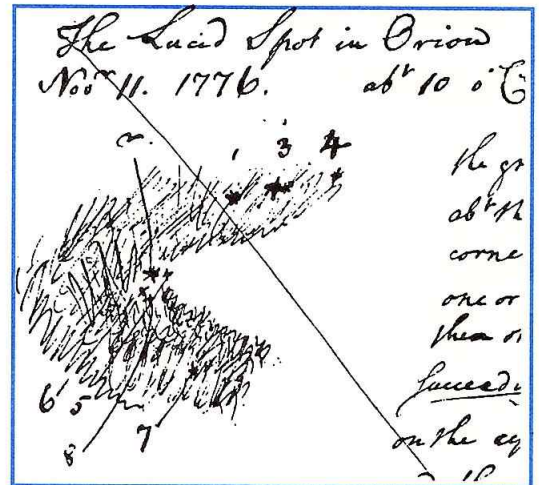 The Lucid Spot in Orion
Novr 11. 1776. abt 10 o'C
2. 1 3 4
the gr
abt th
corne
one or
then or
Succeedi
6 5
8 7
on the